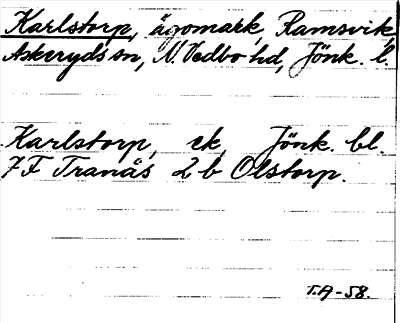 Karlstorp, ägomark, Ramsvik,
Askeryds sn, N. Vedbo hd, Jönk. l.
Karlstorp, ek, Jönk. bl.
7F Tranås 2b Olstorp.
T.A-58.